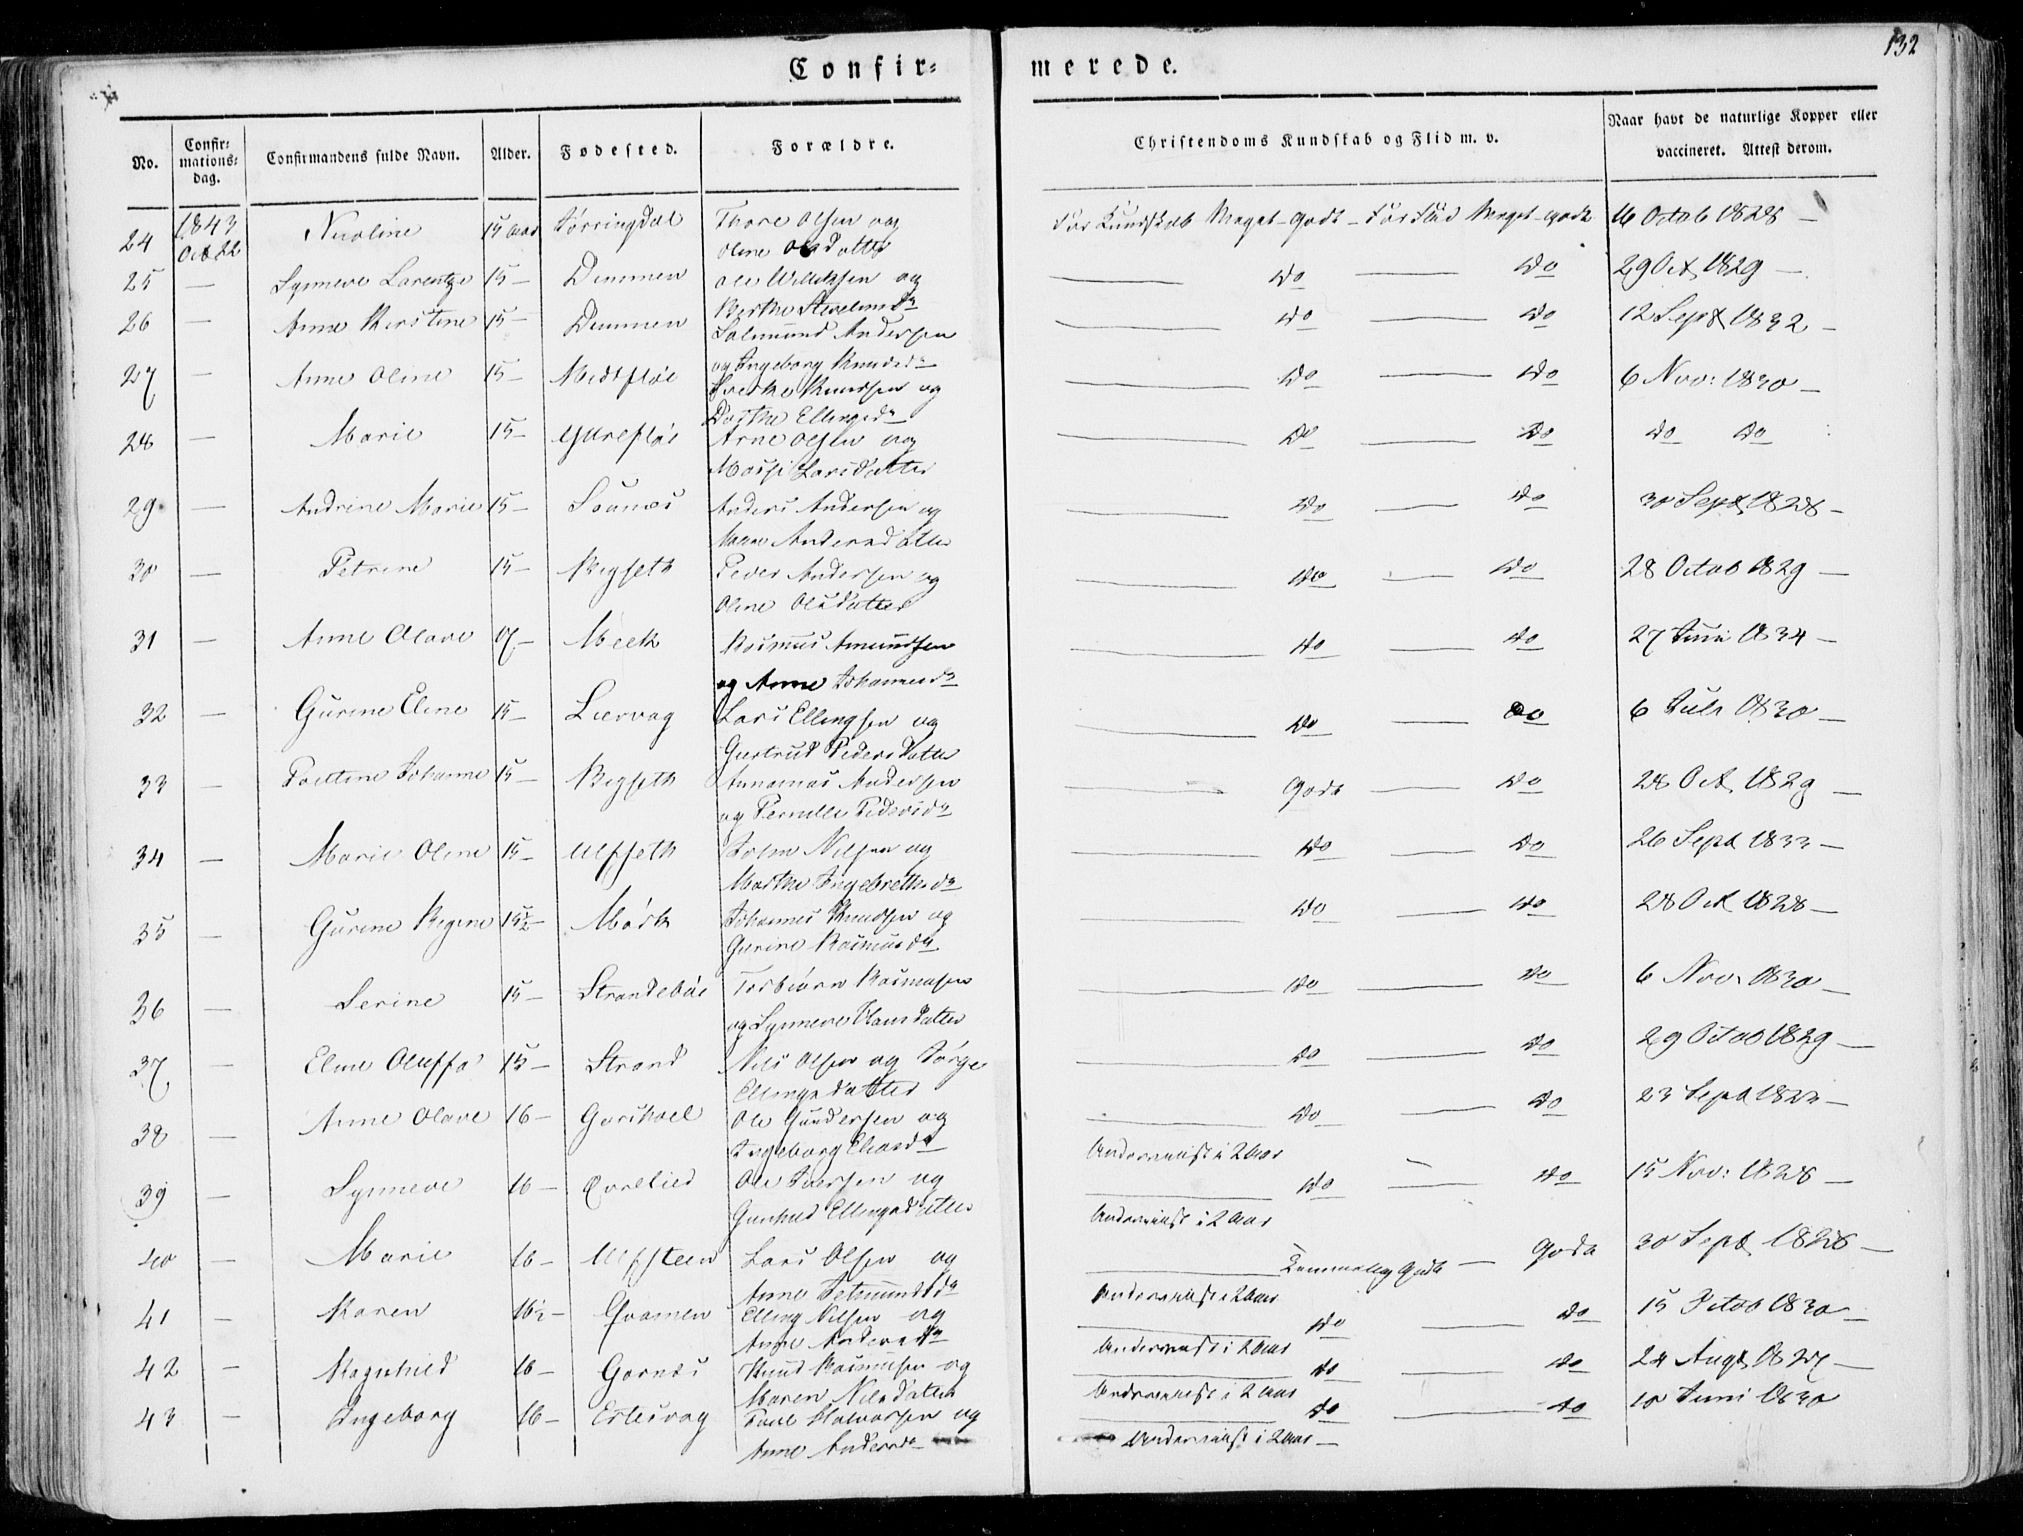 132
Confir= merede.
No. Confir= mations= dag. Confirmandens fulde Navn. Alder. Fødested. Forældre. Christendoms Kundskab og Flid m. v. Naar havt de naturlige Kopper eller vaccineret. Attest derom.
24 1843 Oct 22 Nicoline 15 Aar Tørringdal Thore Olsen og For Kundskab Meget-Godt - For Flid Meget-Godt 16 Octob 1828 —
Oline Olsdatter
25 — Synneve Lorentze 15 — Dimmen Ole Willassen og — do — do 29 Oct 1829 —
26 — Anne Kirstine 15 — Dimmen Salmund Andersen — do — do 12 Sept 1832 —
og Ingeborg Knudsdr
27 — Anne Oline 15 — Midtfløe Knudsen og — do — do 6 Nov: 1830 —
Dorthe Ellingsdr
28 — Marie 15 — Yttrefløe Arne Olsen og — do — do do do
Larsdatter
29 — Andrine Marie 15 — Sounæs Anders Andersen og — do — do 30 Sept 1828 —
Andersdatter
30 — Petrine 15 — Rogseth Peder Andersen og — do — do 28 Octob 1829 —
Oline Olsdatter
31 — Anne Olave 17 — Meek Rasmus Amundsen — do — do 27 Juni 1834 —
og Anne Johannesdr
32 — Gurine Eline 15 — Liervag Lars Ellingsen og — do — do 6 Juli 1830 —
Gurtrud Pedersdatter
33 — Johanne 15 — Rogseth Andersen — Godt — do 28 Oct. 1829 —
og Pernille Pedersdr
34 — Marie Oline 15 — Ulfseth Nilsen og — do — do 26 Sept 1833 —
Marthe Ingebrethsdr
35 — Gurine Regine 15½ — Mørk Johannes Knudsen og — do — do 28 Oct 1828 —
Gurine Rasmusdr
36 — Serine 15 — Strandebøe Torbiørn Rasmusen — do — do 6 Nov. 1830 —
og Synneve Clausdatter
37 — Eline Oluffa 15 — Strand Nils Olsen og — do — do 29 Octob 1829 —
Ellingsdatter
38 — Anne Olave 16 — Ole Gundersen og — do — do 23 Sept 1833 —
Ingeborg Eliasdr Underviist i 2 Aar
39 — Synneve 16 — Ovrelied Ole Iversen og — do — do 15 Nov: 1828 —
Gunhild Ellingsdatter Underviist i 2 Aar
40 — Marie 16 — Ulfsteen Lars Olsen og — Temmelig Godt — Godt 30 Sept 1828 —
Anne Underviist i 2 Aar
41 — Karen 16½ — Qvamen Elling Nilsen og — do — do 15 Octob 1830 —
Anne Andersdr Underviist i 2 Aar
42 — Ragnhild 16 — Gornæs Knud Rasmusen og — do — do 24 Augt 1827 —
Maren Nilsdatter Underviist i 2 Aar
43 — Ingeborg 16 — Estesvag Halvorsen og — do — do 10 Juni 1830
Anne Andersdr Underviist i 2 Aar —